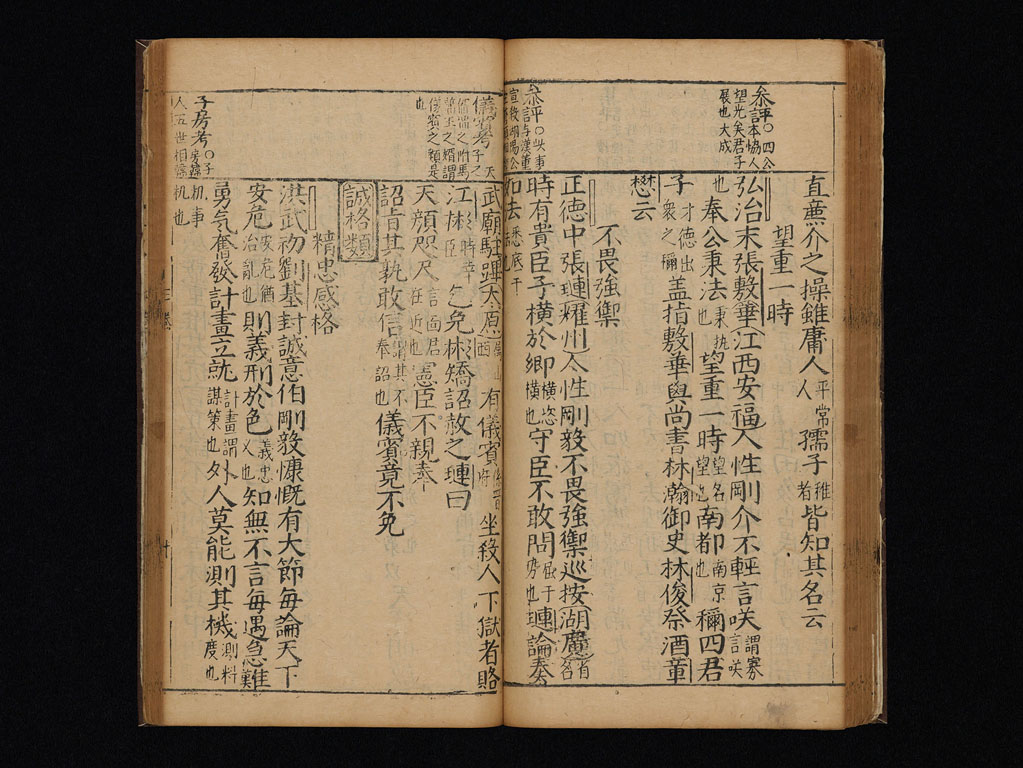 叅評〇四公
話本協人
望光矣君子
展也大成
直蔗介之操雖庸人平常人孺子稚者皆知其名云
望重一時
弘治末張敷華江西安福人性剛介不輕言咲謂寡言咲
也奉公秉法秉執也望重一時望名望也南都即南京也稱四君
子才德出衆之稱盖指敷華與尚書林瀚御史林俊祭酒章
懋云
叅評〇此事
不畏強禦
正德中張璉耀州人性剛毅不畏強禦巡按湖廣省名
時有貴臣子橫於鄉橫恣橫也守臣不敢問璉論奏
如去
儀賓考
子之
儀賓之類是
也
武廟駐蹕太原有儀賓坐殺人下獄者賂
江彬時幸臣乞免彬矯詔赦之璉曰
天顔咫尺言面君在近也憲臣不親奉
詔旨其孰敢信謂其不奉詔也儀賓竟不免
誠格類
精忠感格
洪武初劉基封誠意伯剛毅慷慨有大節每論天下
安危安危猶治亂也則義形於色義忠義也知無不言每遇急難
子房考〇子房韓
人五世相韓
勇氣奮發計畫立就計畫謂謀策也外人莫能測其機測料度也
机机事也